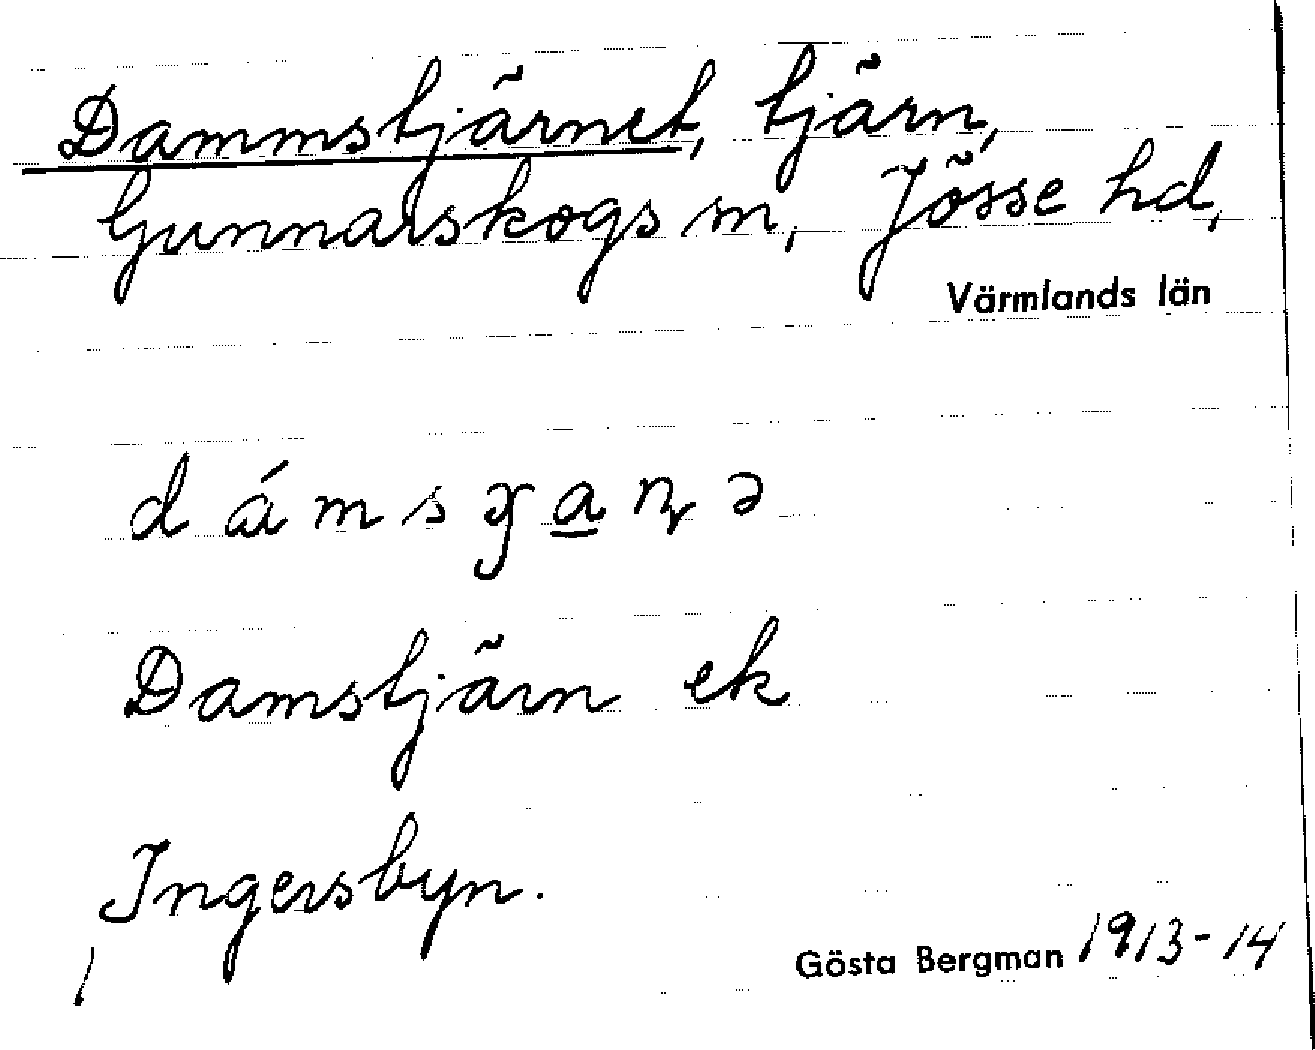 Dammstjärnet, tjärn,
Gunnarskogs sn, Jösse hd,
Värmlands län
Damstjärn ek
Ingersbyn.
Gösta Bergman 1913-14